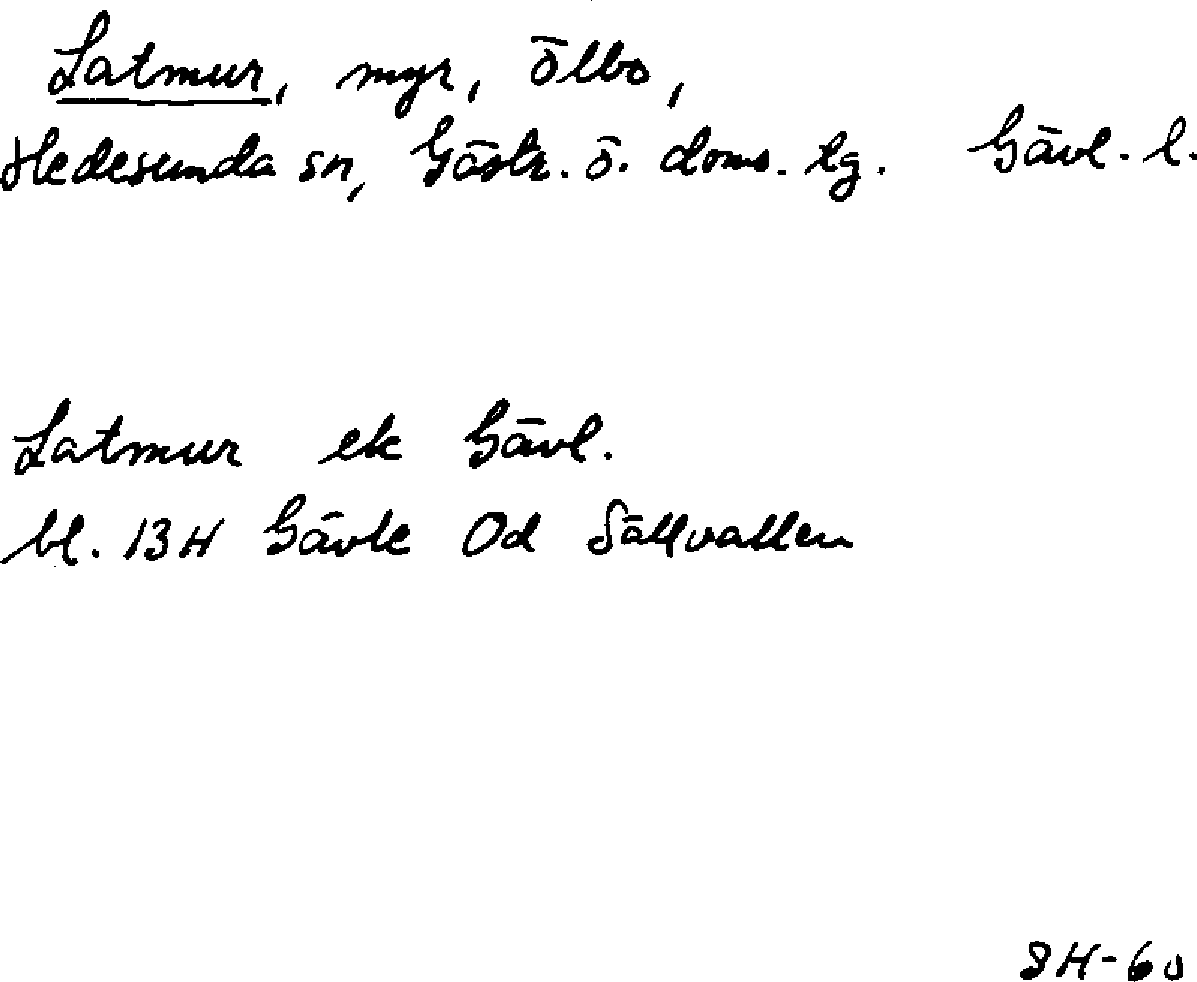 Latmur, myr, Ölbo,
Hedesunda sn, Gästr. ö. doms. tg. Gävl. l.
Latmur ek Gävl.
bl. 13H Gävle Od Sällvallen
SH-60